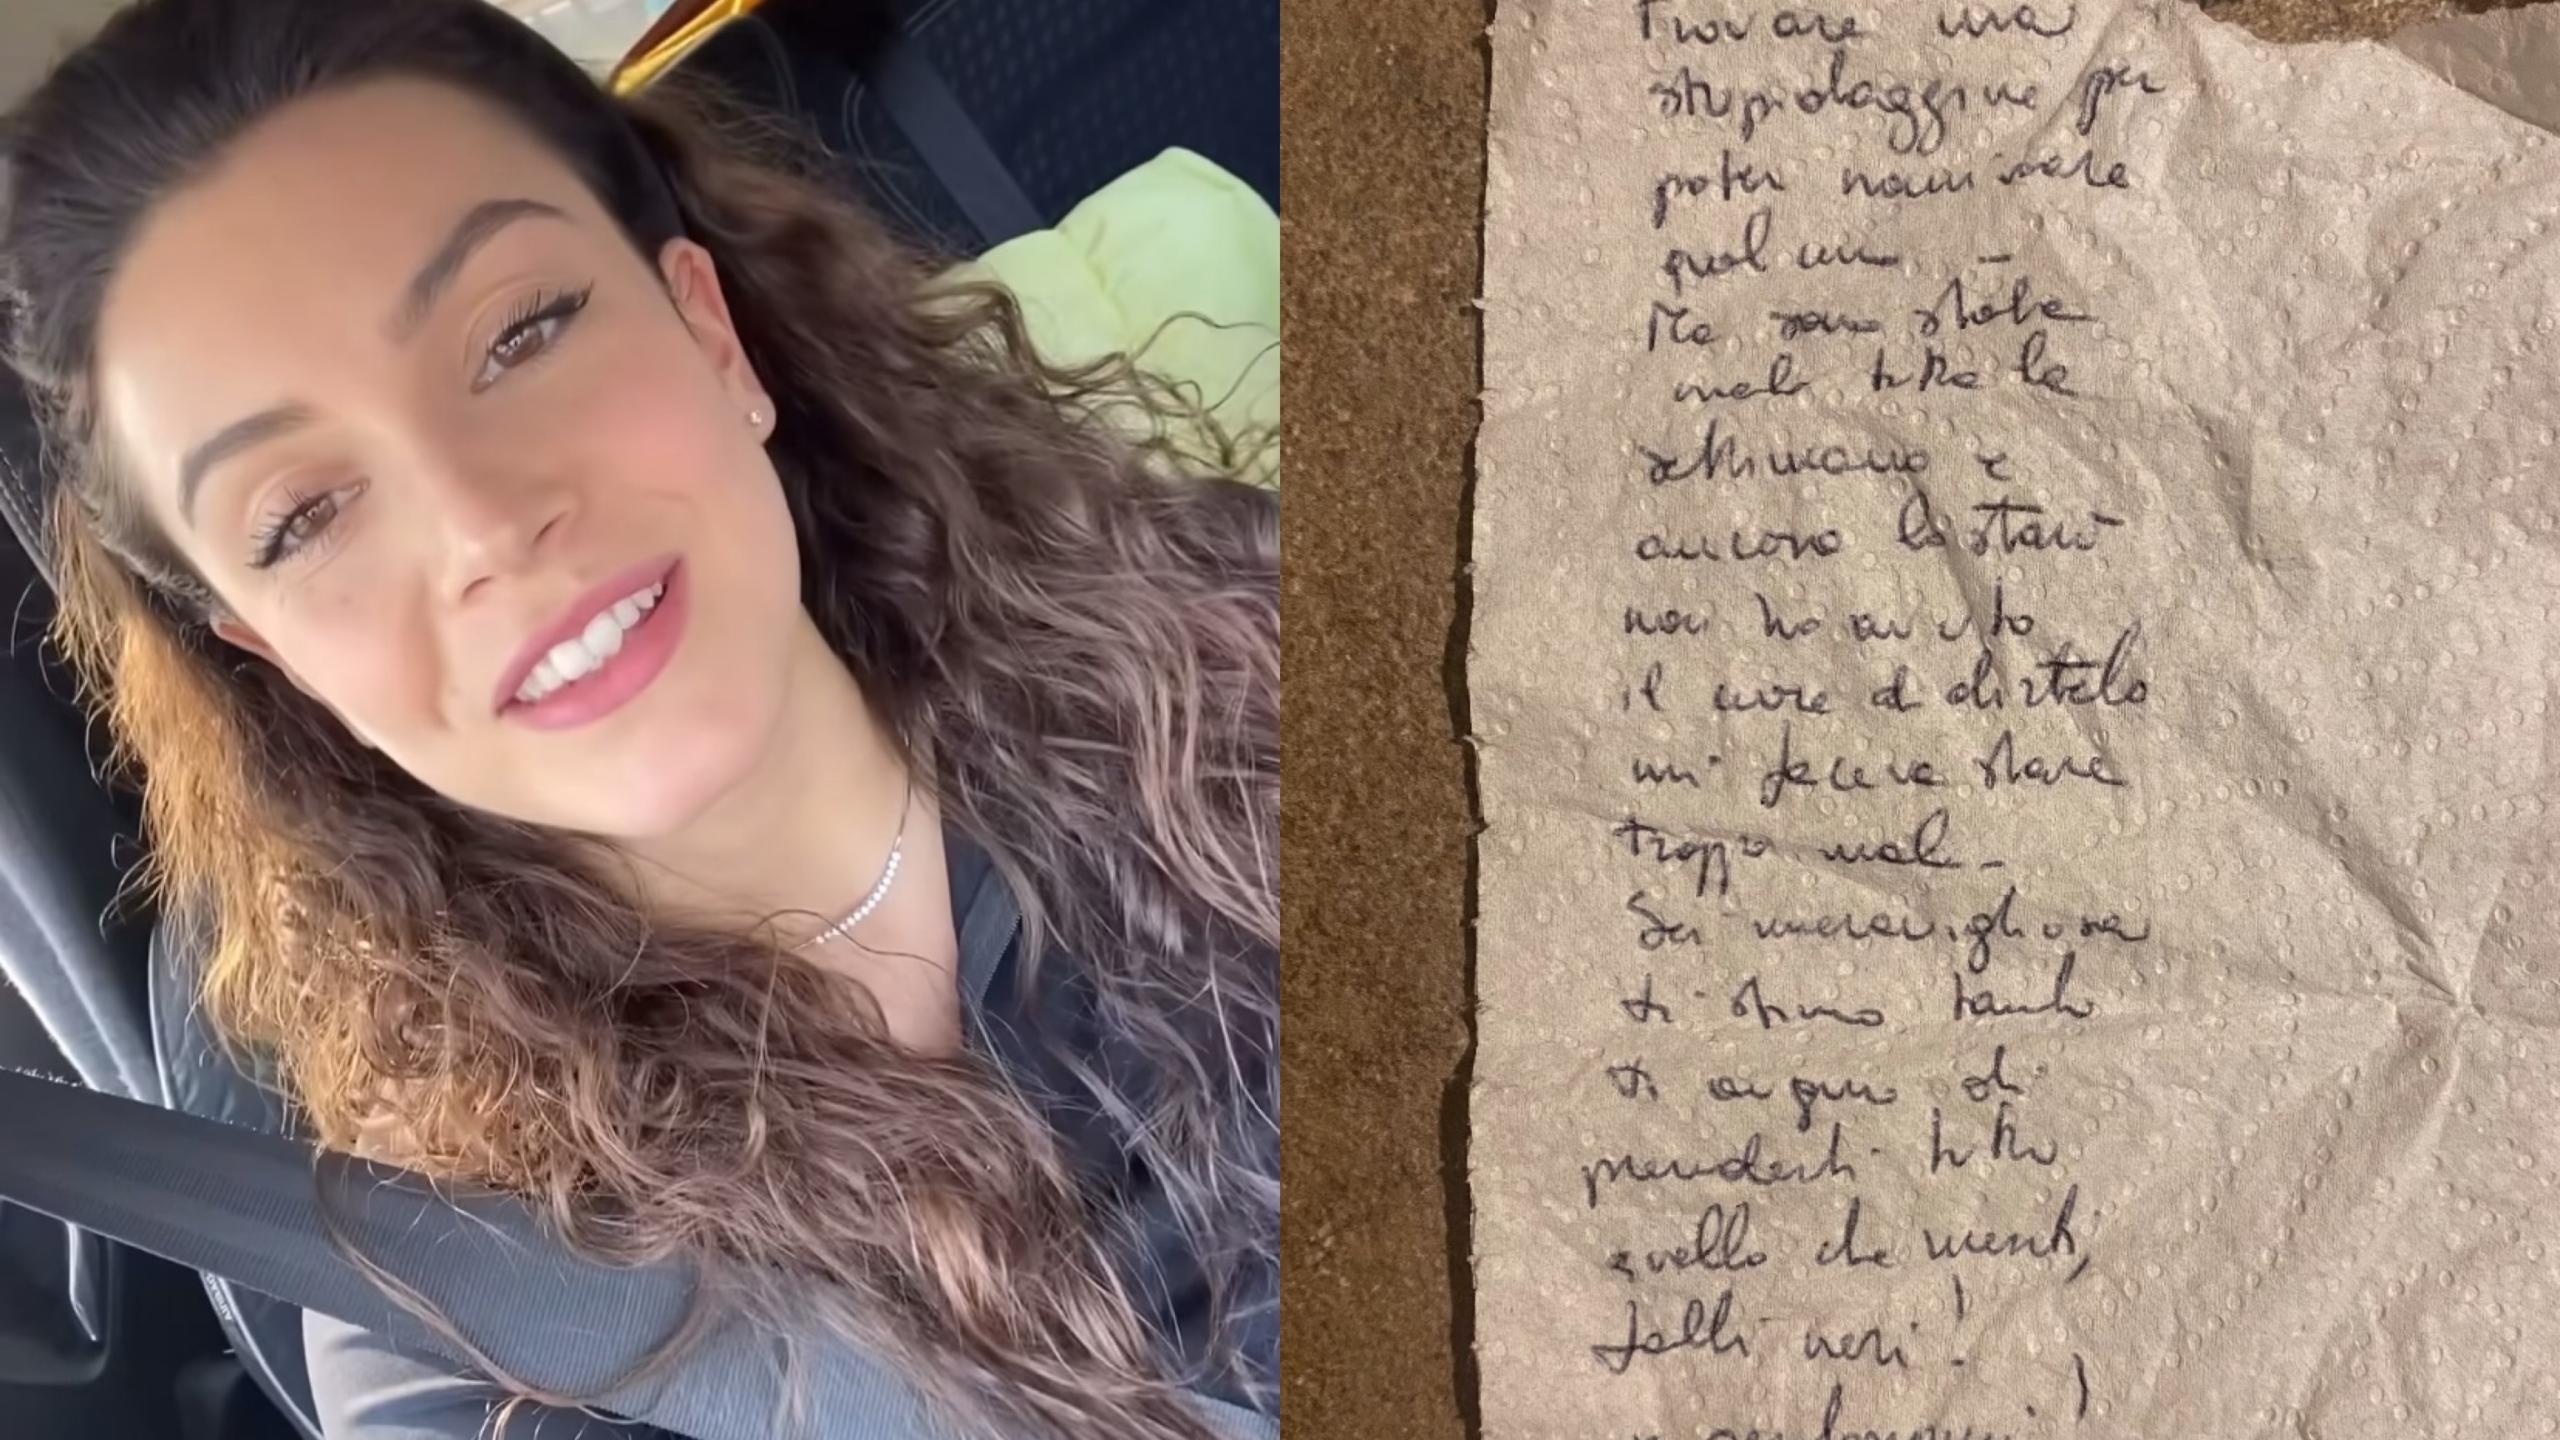 Trovare una
stupidaggine per
poter
Ma sono stata
male tutta la
settimana e
ancora lo starò
non ho avuto
il cuore di dirtelo
mi faceva stare
troppo male -
Sei meravigliosa
ti stimo tanto
ti auguro di
prenderti tutto
quello che meriti,
falli neri!
AIRBAG